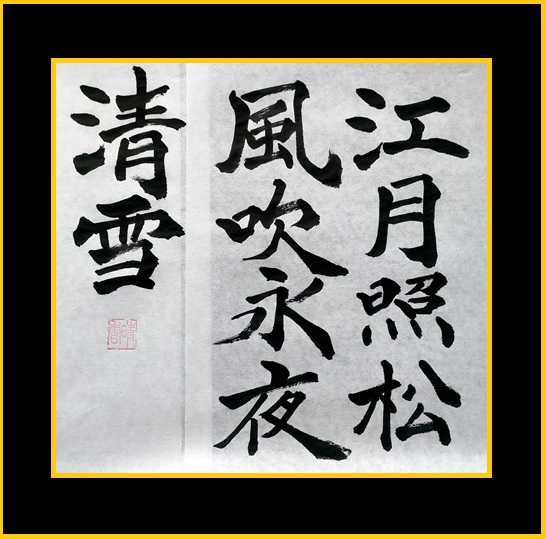 江月照松
風吹永夜
清雪